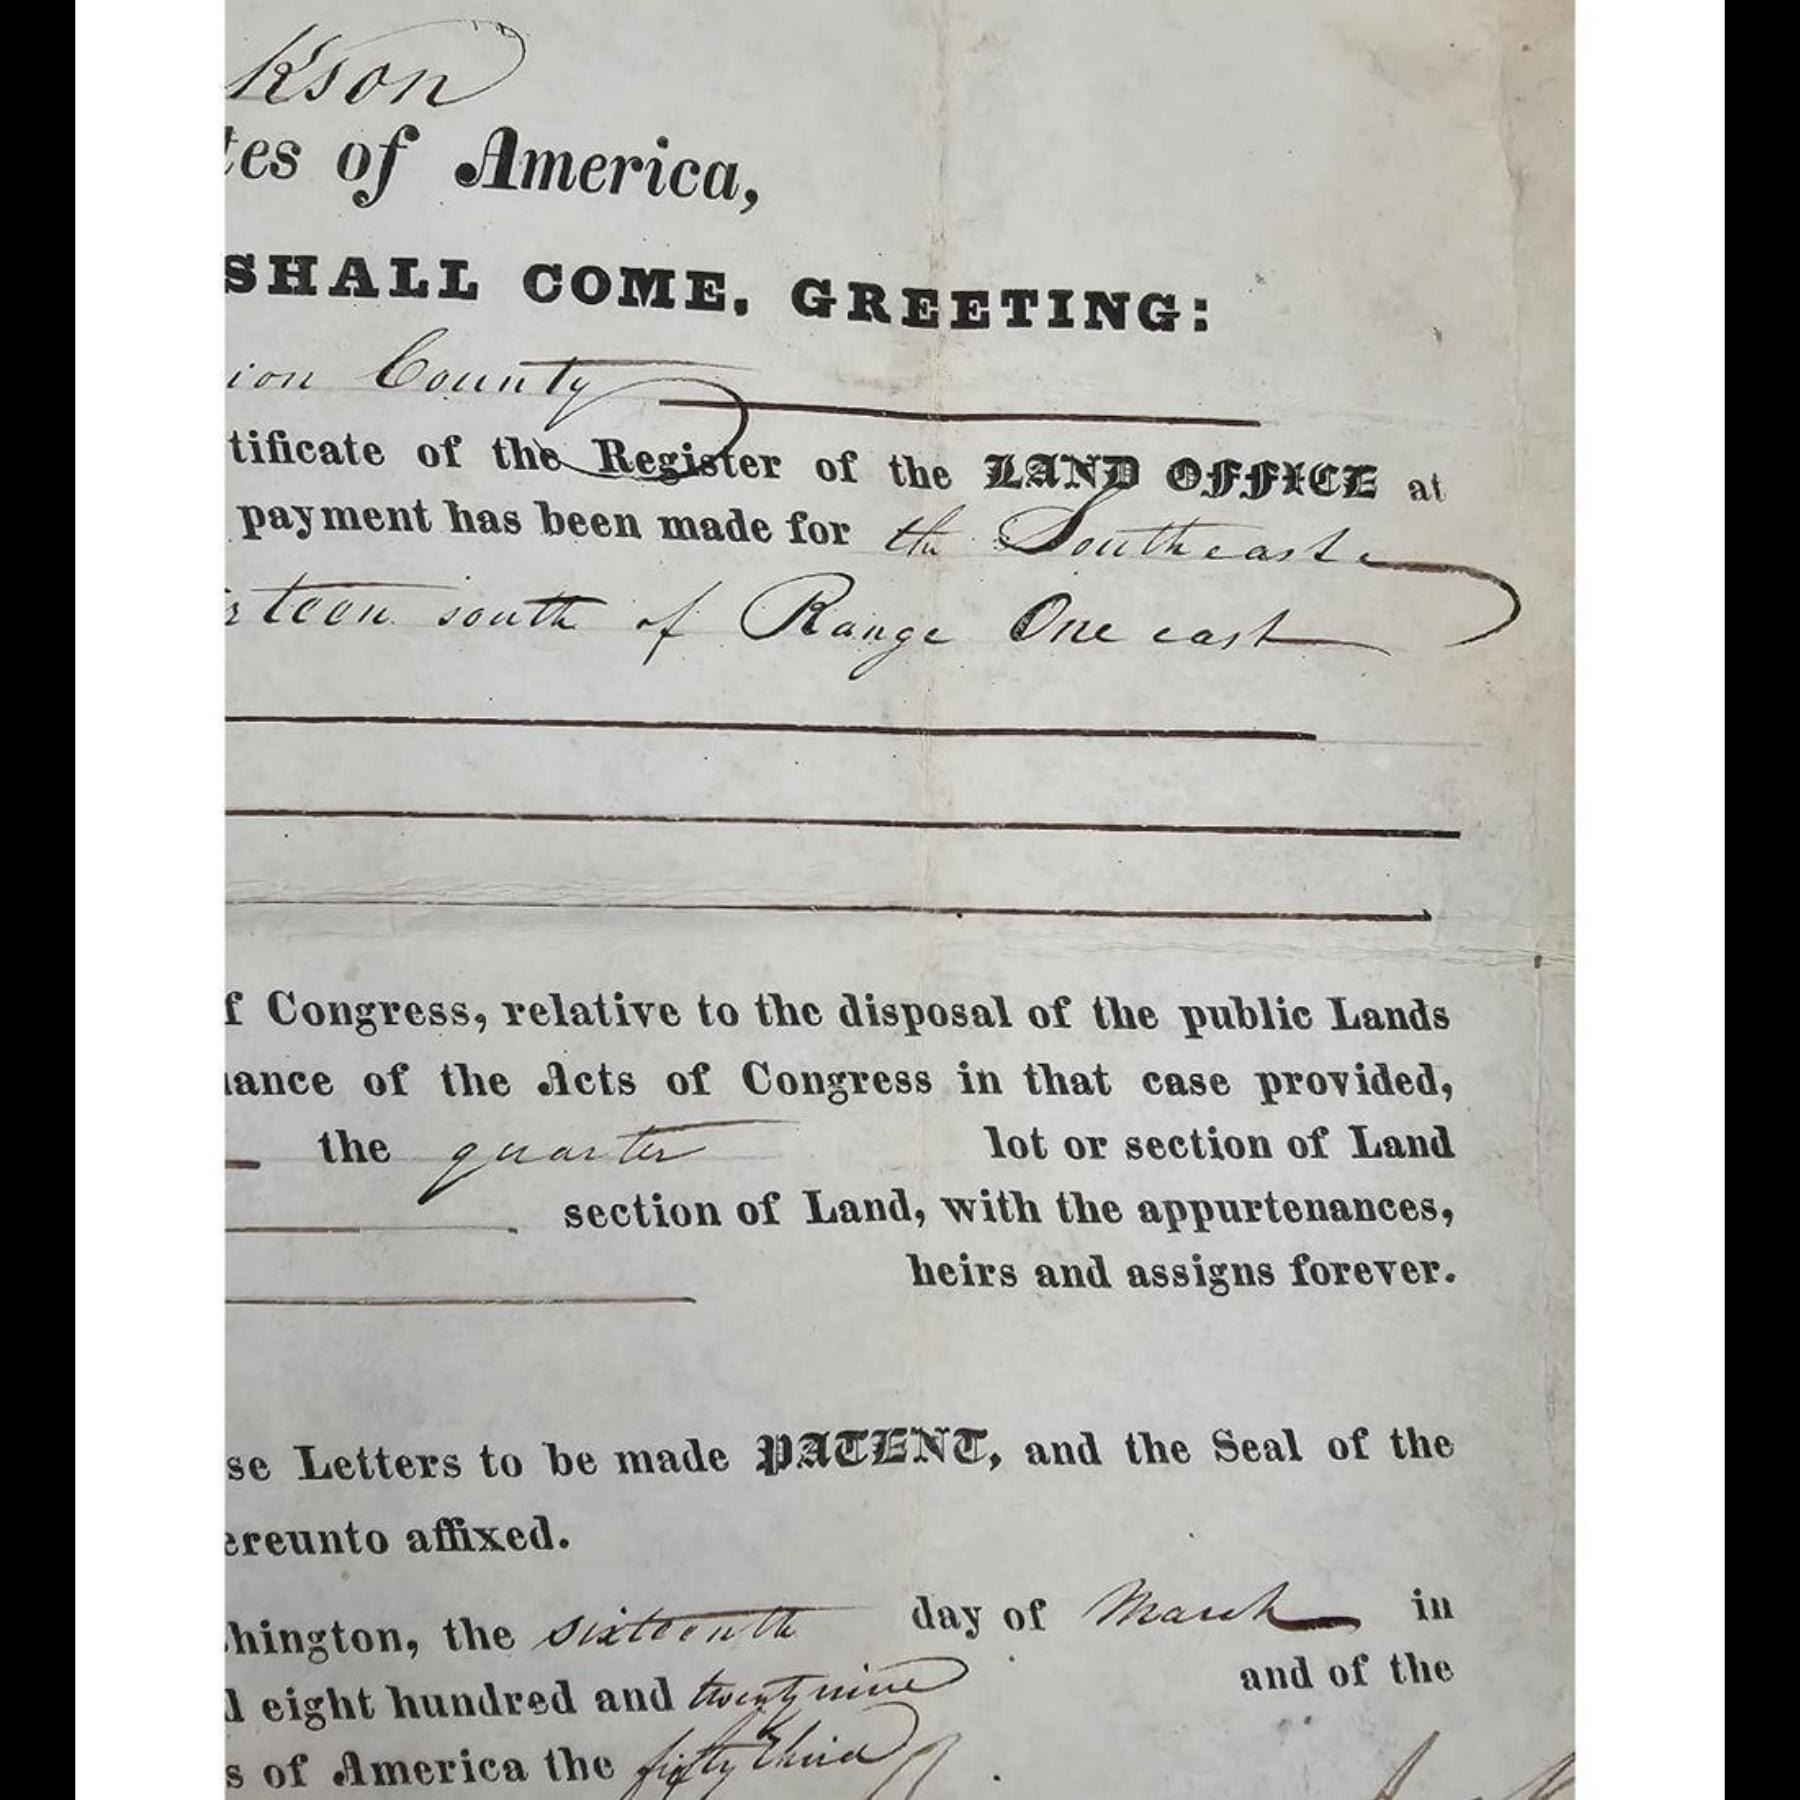 kson
tes of America,
SHALL COME, GREETING:
ion County
tificate of the Register of the LAND OFFICE at
payment has been made for the Southeast
rteen south of Range One east
f Congress, relative to the disposal of the public Lands
uance of the Acts of Congress in that case provided,
the quarter lot or section of Land
section of Land, with the appurtenances,
heirs and assigns forever.
se Letters to be made PATENT, and the Seal of the
ereunto affixed.
hington, the sixteenth day of March in
d eight hundred and twenty nine and of the
s of America the fifty third